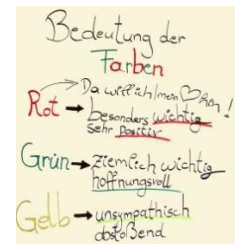 Bedeutung der
Farben
Da will ich/mein ♡ hin!
Rot → besonders wichtig
sehr positiv
Grün → ziemlich wichtig
hoffnungsvoll
Gelb → unsympathisch
abstoßend